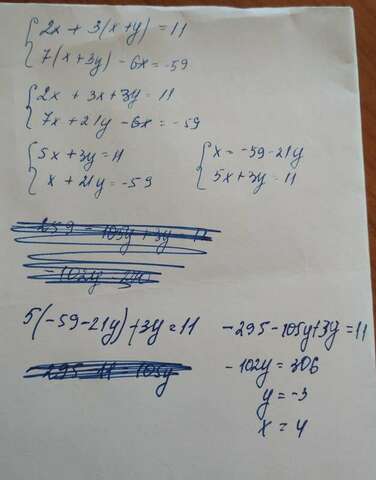 2x + 3(x+y) = 11
7(x+3y) - 6x = -59
2x + 3x+3y = 11
7x + 21y - 6x = -59
5x + 3y = 11
x + 21y = -59
x = -59-21y
5x+3y = 11
5(-59-21y)+3y=11
-295-105y+3y=11
-102y = 306
y = -3
x = 4